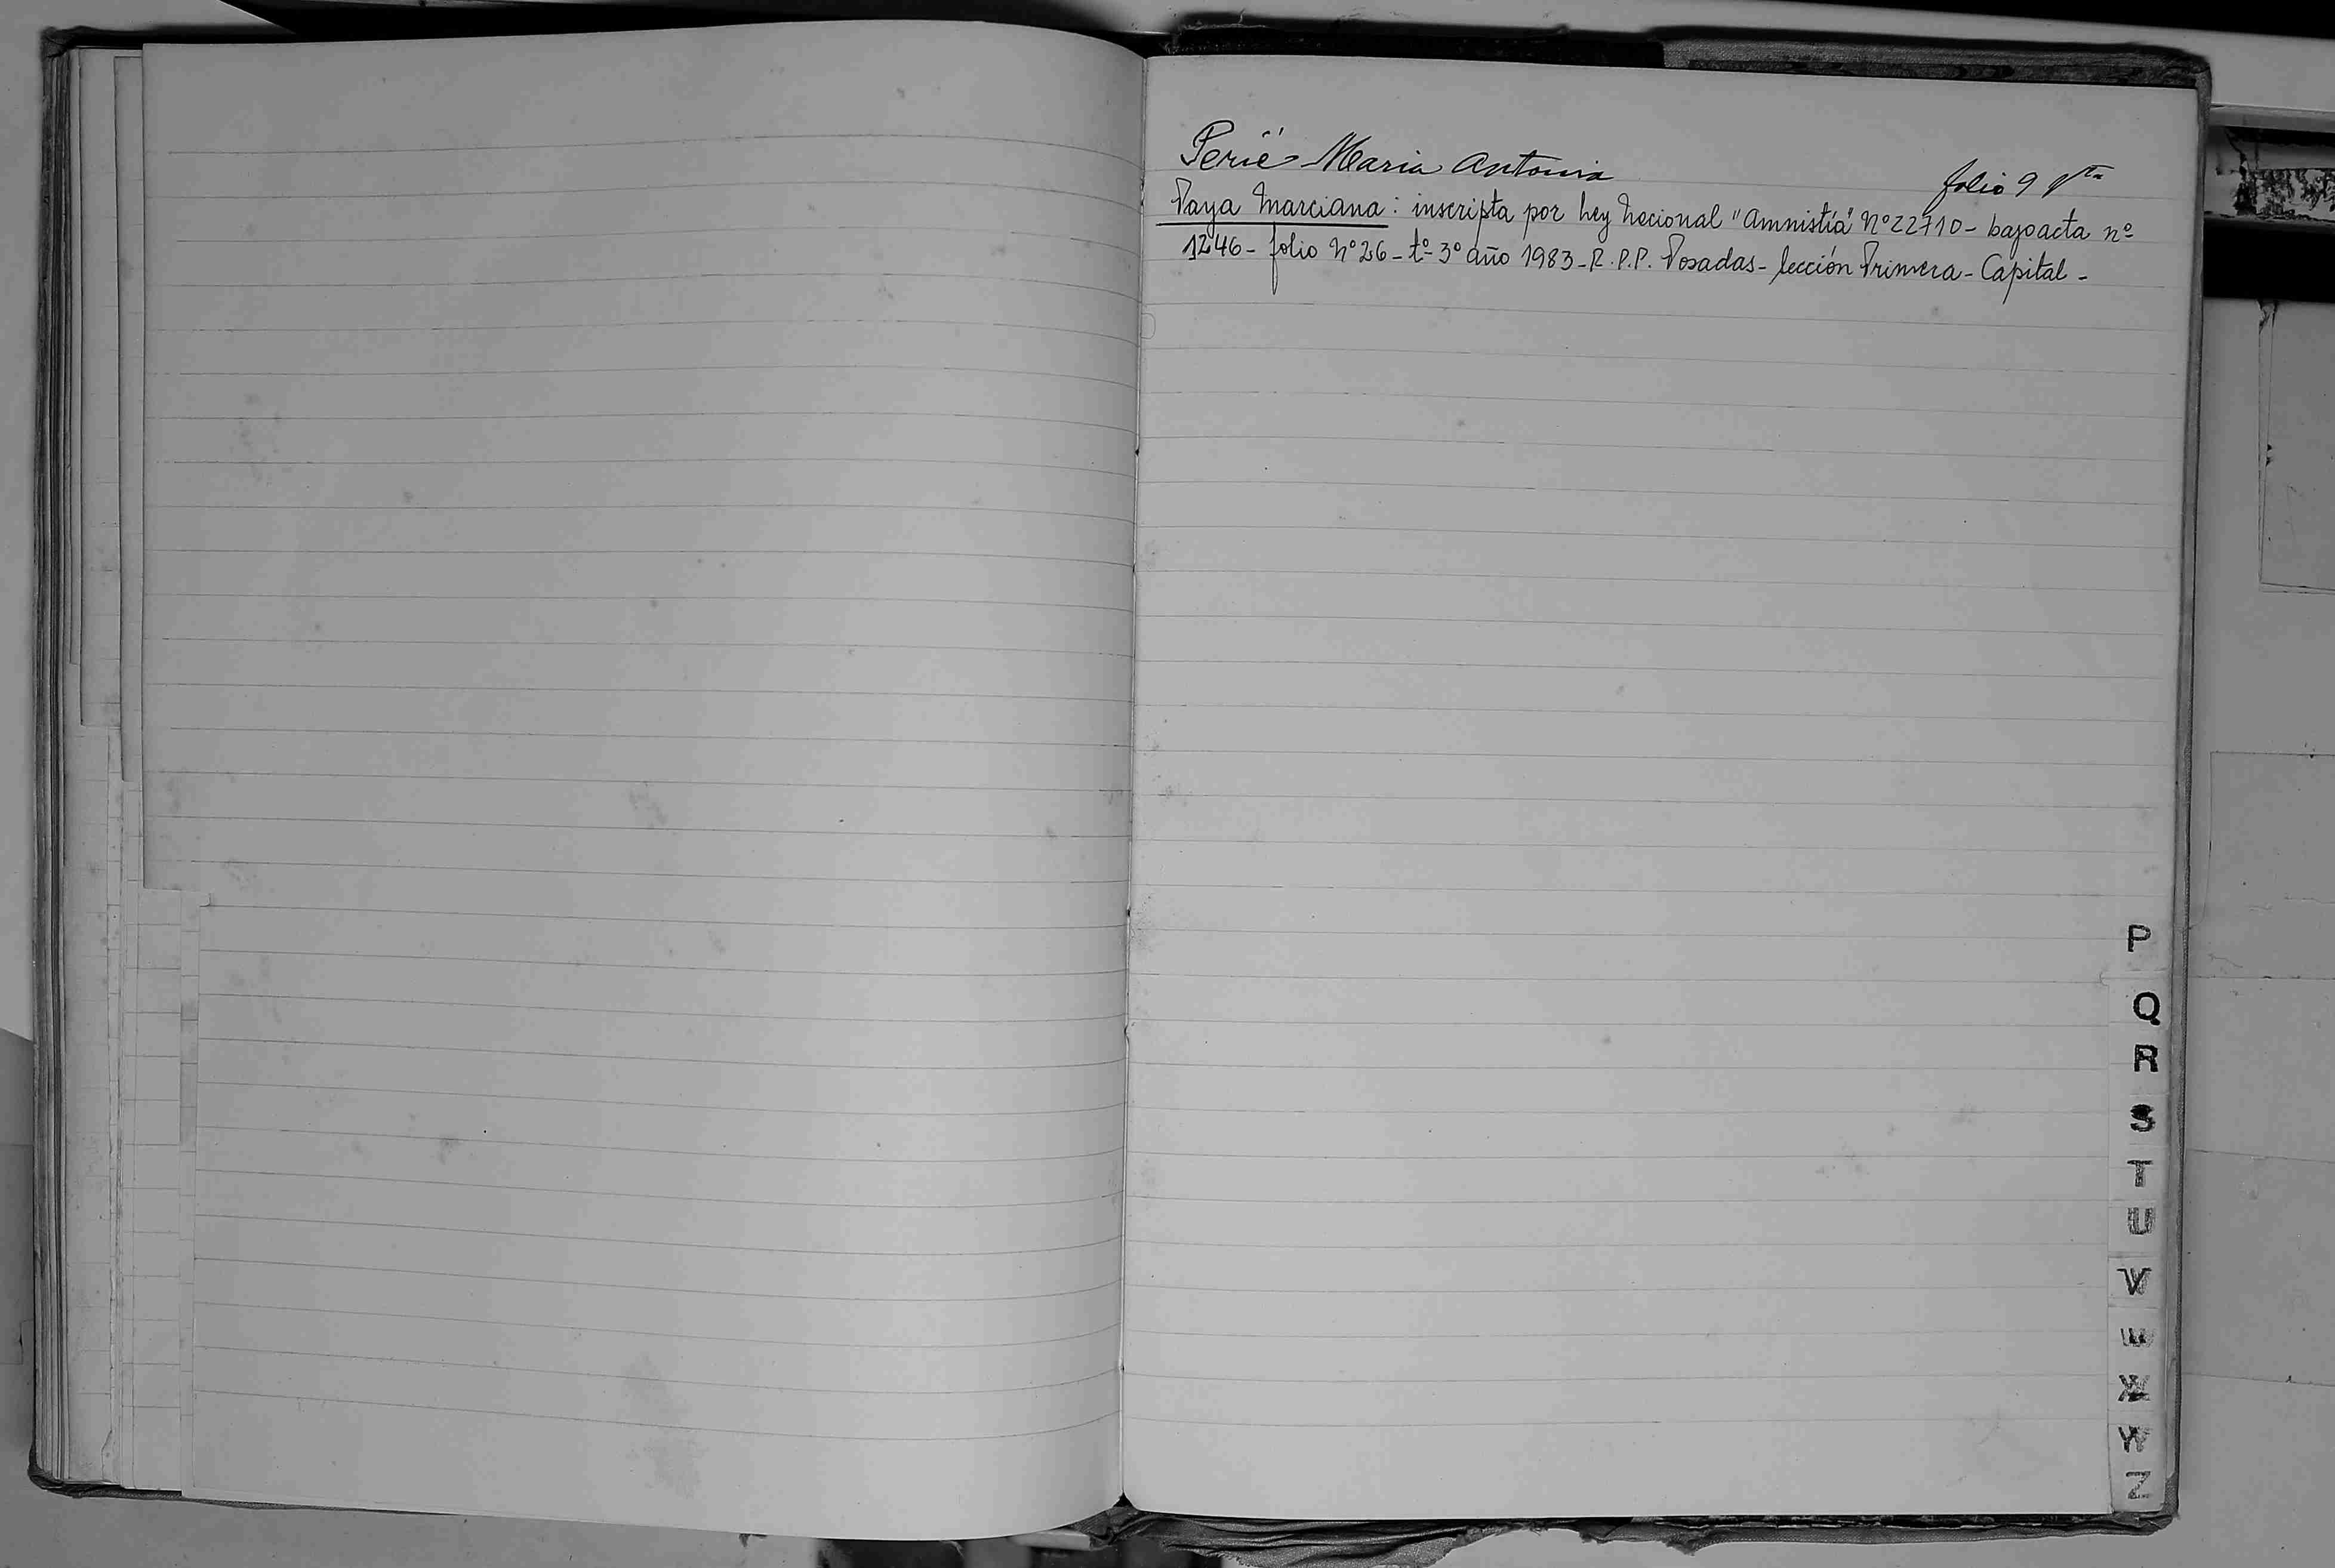 Perié Maria Antonia folio 9 Vta
Paya Marciana: inscripta por Ley Nacional "Amnistía" Nº 22710 - bajo acta nº
1246 - folio Nº 26 - tº 3º año 1983 - R.P.P. Posadas - Sección Primera - Capital -
P
Q
R
S
T
U
V
W
X
Y
Z